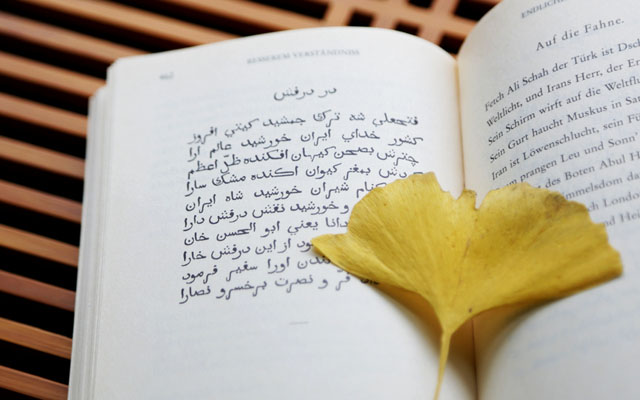 BESSEREM VERSTÄNDNIS
در درفش
فتحعلي شه ترك جمشيد كيتي افروز
كشور خداي ايران خورشيد عالم ارا
چترش بصحن كيهان افكنده ظلّ اعظم
بمغز كيوان اكنده مشك سارا
كنام شيران خورشيد شاه ايران
و خورشيد نقش درفش دارا
دانا يعني ابو الحسن خان
از اين درفش خارا
اورا سفير فرمود
فر و نصرت برخسرو نصارا
ENDLICHE
Auf die Fahne.
Fetch Ali Schah der Türk ist Dsch
Weltlicht, und Irans Herr, der Er
Sein Schirm wirft auf die Weltflu
Sein Gurt haucht Muskus in Sa
Iran ist Löwenschlucht, sein Fü
prangen Leu und Sonn
des Boten Abul H
mmelsdom da
ach Londo